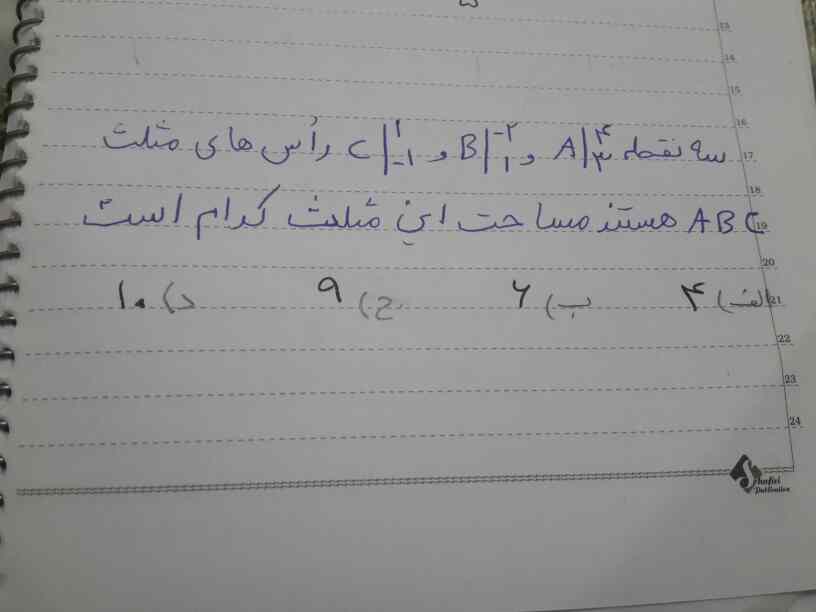 سه نقطه A|۴ ۳ و B|-۲ ۱ و C|۱ -۱ رأس های مثلث
ABC هستند مساحت این مثلث کدام است
الف) ۴ ب) ۶ ج) ۹ د) ۱۰
13
14
15
16
17
18
19
20
21
22
23
24
Shafiei
Publication